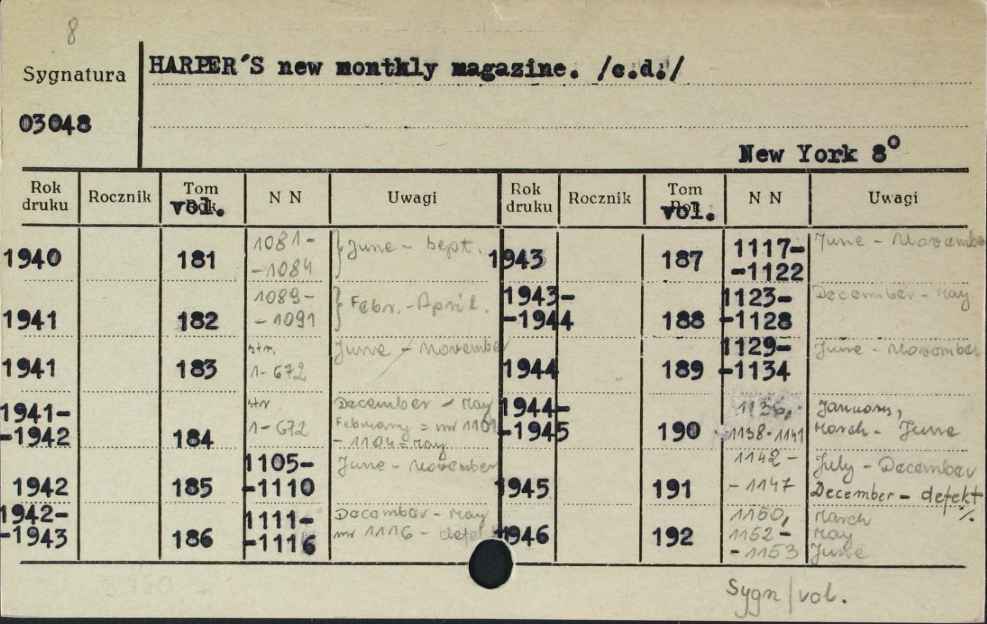 8
Sygnatura HARPER'S new monthly magazine. /c.d./
03048
New York 8°
Rok druku Rocznik Tom vol. N N Uwagi Rok druku Rocznik Tom vol. N N Uwagi
1940 181 1081- -1084 } June - Sept.
1941 182 1089- -1091 } Febr. - April.
1941 183 str. 1-672 June - November
1941- -1942 184 str 1-672 December - May
February = nr 1101
- 1104 = May
1942 185 1105- -1110 June - November
1942- -1943 186 1111- -1116 December - May
nr 1116 - defe
1943 187 1117- -1122 June - November
1943- -1944 188 1123- -1128 December - May
1944 189 1129- -1134 June - November
1944- -1945 190 1136, 1138-1141 January,
March - June
1945 191 1142- -1147 July - December
December - defekt
%
1946 192 1150, 1152- -1153 March
May
June
Sygn/vol.